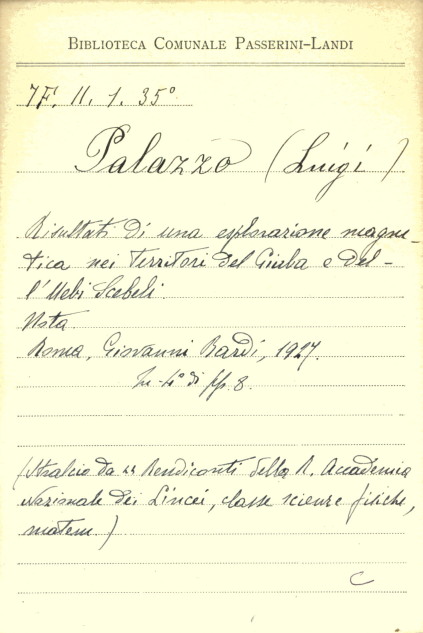 BIBLIOTECA COMUNALE PASSERINI-LANDI
7F. II. 1. 35°
Palazzo (Luigi)
Risultati di una esplorazione magne-
tica nei Territori del Giuba e del-
l'Uebi Scebeli.
Nota.
Roma, Giovanni Bardi, 1927.
In-4° di pp. 8.
(Stralcio da "Rendiconti della R. Accademia
Nazionale dei Lincei, classe scienze fisiche,
matem.)
C